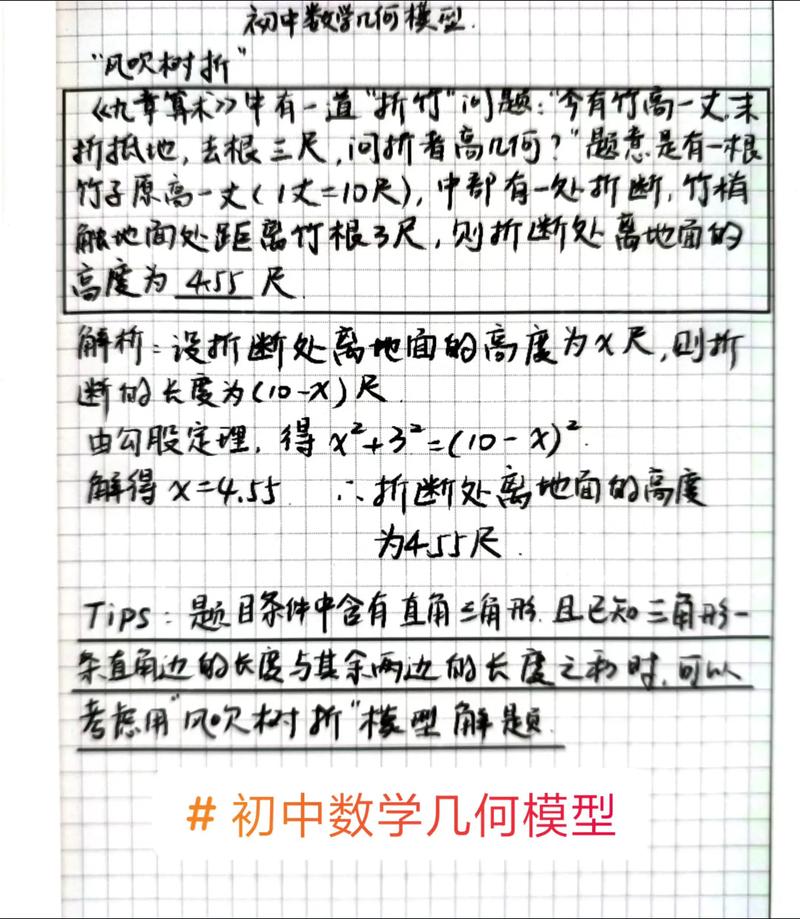 初中数学几何模型.
“风吹树折”
《九章算术》中有一道“折竹”问题:“今有竹高一丈,末
折抵地,去根三尺,问折者高几何?”题意是有一根
竹子原高一丈(1丈=10尺),中部有一处折断,竹梢
触地面处距离竹根3尺,则折断处离地面的
高度为 4.55 尺.
解析:设折断处离地面的高度为x尺,则折
断的长度为(10-x)尺
由勾股定理,得 x²+3²=(10-x)².
解得 x=4.55 ∴折断处离地面的高度
为4.55尺.
Tips:题目条件中含有直角三角形.且已知三角形一
条直角边的长度与其余两边的长度之和时,可以
考虑用“风吹树折”模型解题.
# 初中数学几何模型